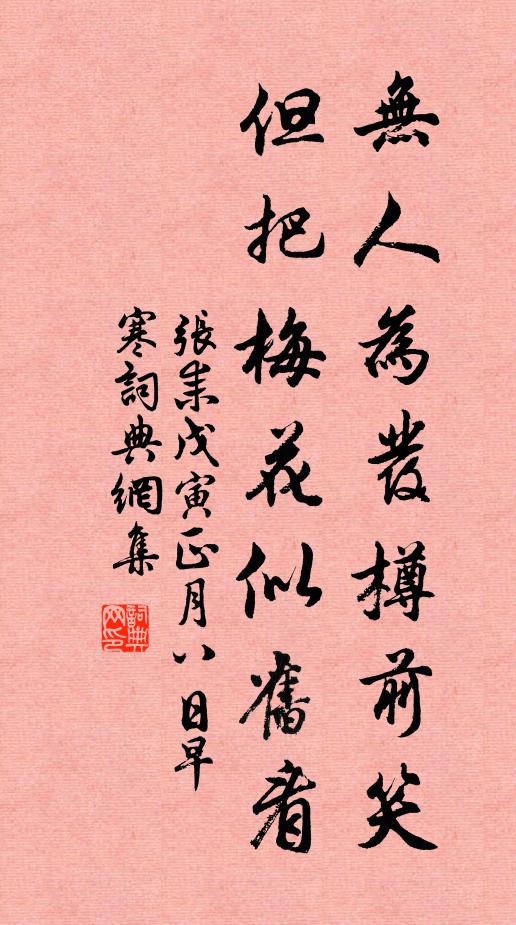 無人為發樽前笑
但把梅花似舊看
張耒戊寅正月八日早
寒詞典網集
詞典
网印